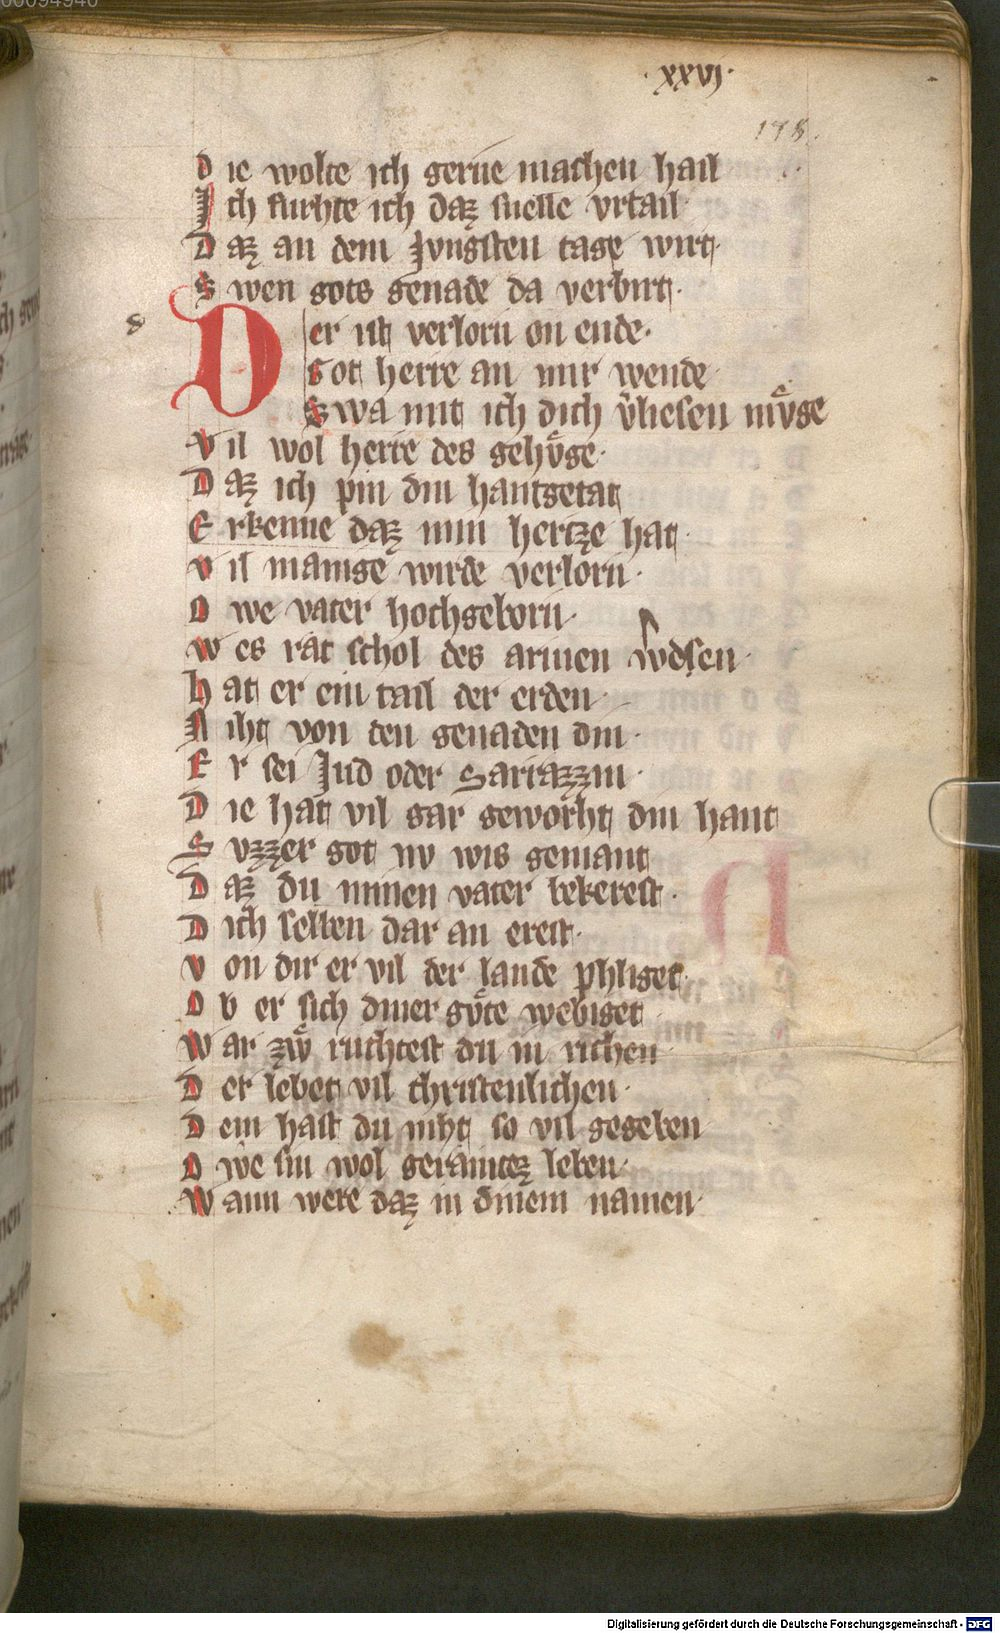 00094946
·xxvj·
178.
D ie wolte ich gerne machen hail
J ch furhte ich daz snelle vrtail
D az an dem Jvngsten tage wirt·
S wen gots genade da verbirt·
d
D er ist verlorn on ende·
G ot herre an mir wende
S wa mit ich dich v̄liesen mvͤge
V il wol herre des gehvͤge·
D az ich pin din hantgetat
E rkenne daz min hertze hat·
V il manige wirde verlorn·
O we vater hochgeborn·
W es rat schol des armen w̾dsen·
H at er ein tail der erden·
N iht von den genaden din·
E r sei Jud oder Sarrazzin·
D ie hat vil gar geworht din hant
S vzzer got nv wis gemant
D az du minen vater bekerest·
D ich selben dar an erest·
V on dir er vil der lande phliget·
O b er sich diner gvͤte webiget
W ar zwͦ ruchtest du in richen
D er lebet vil christenlichen·
D em hast du niht so vil gegeben
O we sin wol geraintez leben·
W ann were daz in dinem namen·
Digitalisierung gefördert durch die Deutsche Forschungsgemeinschaft - DFG